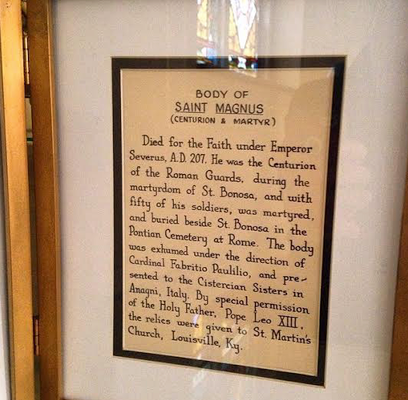 BODY OF
SAINT MAGNUS
(CENTURION & MARTYR)
Died for the Faith under Emperor
Severus, A.D. 207. He was the Centurion
of the Roman Guards, during the
martyrdom of St. Bonosa, and with
fifty of his soldiers, was martyred,
and buried beside St. Bonosa in the
Pontian Cemetery at Rome. The body
was exhumed under the direction of
Cardinal Fabritio Paulilio, and pre-
sented to the Cistercian Sisters in
Anagni, Italy. By special permission
of the Holy Father, Pope Leo XIII,
the relics were given to St. Martin's
Church, Louisville, Ky.